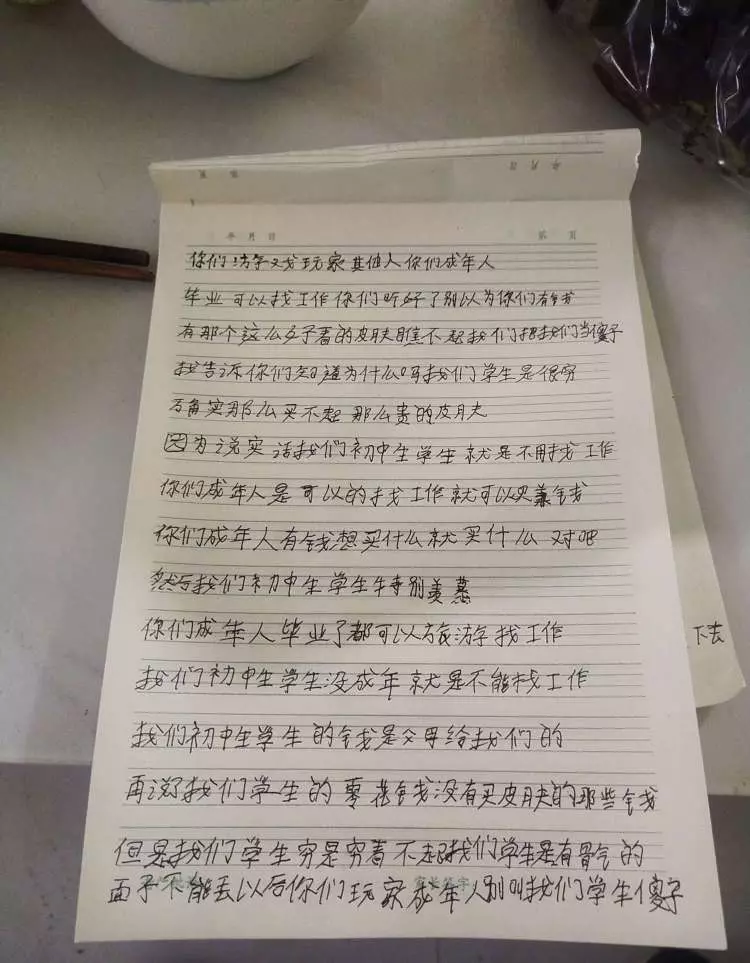 年 月 日
第 页
你们游字戏玩家其他人你们成年人
毕业可以找工作你们听好了别以为你们有钱
有那个这么多子看的皮肤瞧不起我们把我们当傻子
我告诉你们知道为什么吗我们学生是很穷
确实那么买不起那么贵的皮肤
因为说实话我们初中生学生就是不用找工作
你们成年人是可以的找工作就可以赚钱
你们成年人有钱想买什么就买什么对吧
然后我们初中生学生特别羡慕
你们成年人毕业了都可以旅游字找工作
我们初中生学生没成年就是不能找工作
我们初中生学生的钱是父母给我们的
再说了我们学生的零花钱没有买皮肤的那些钱
但是我们学生穷是穷着不起我们学生是有骨气的
面子不能丢以后你们玩家成年人别叫我们学生傻子
家长签字
下去